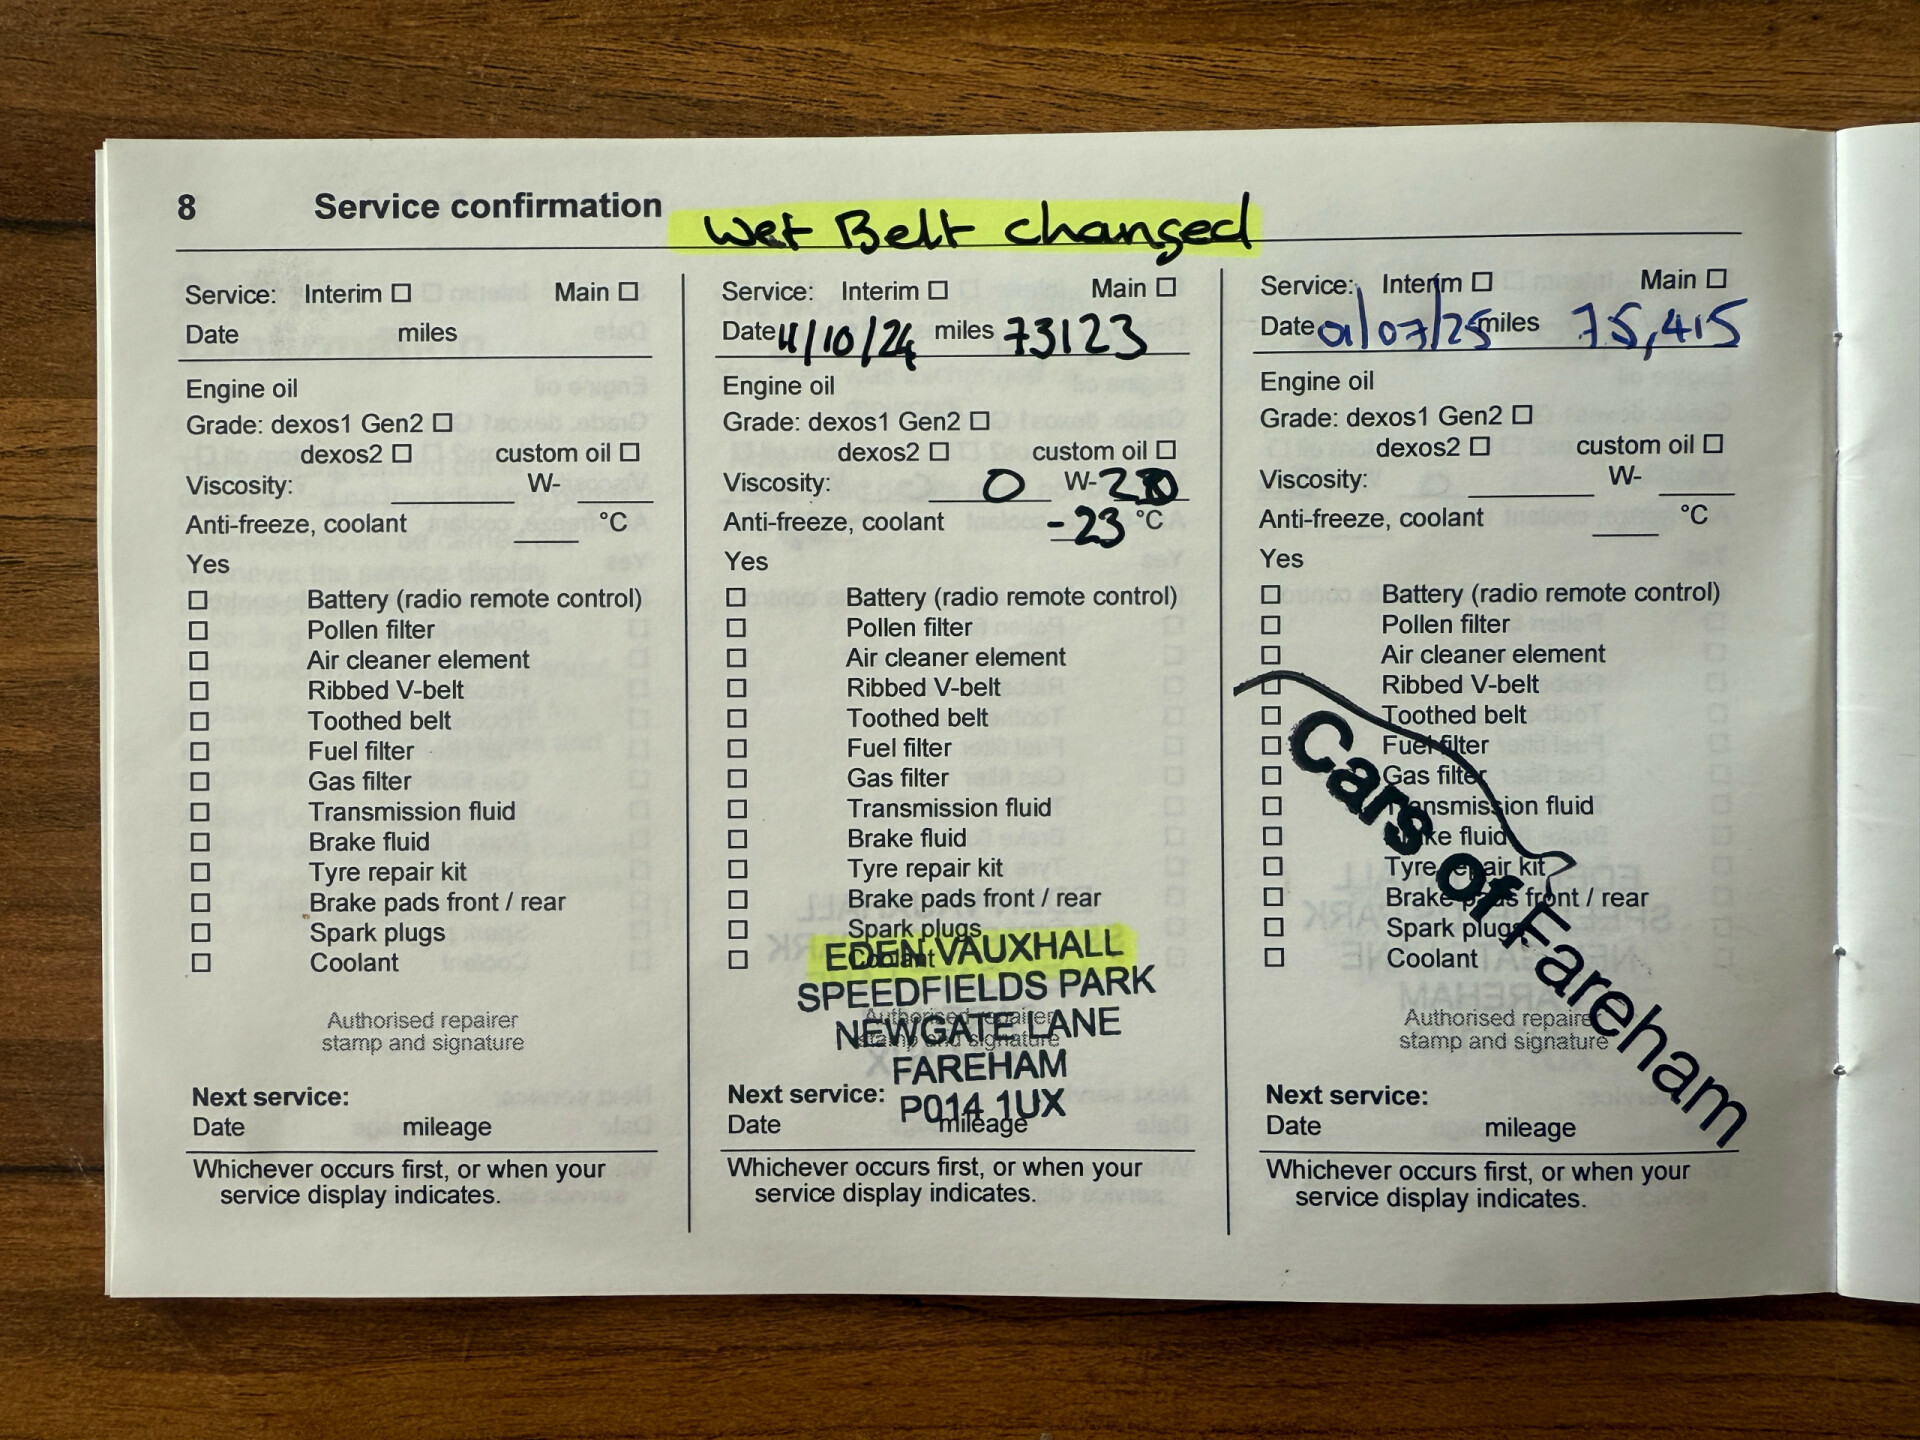 8 Service confirmation
Wet Belt changed
Service: Interim ☐ Main ☐
Date miles
Engine oil
Grade: dexos1 Gen2 ☐
dexos2 ☐ custom oil ☐
Viscosity: W-
Anti-freeze, coolant °C
Yes
☐ Battery (radio remote control)
☐ Pollen filter
☐ Air cleaner element
☐ Ribbed V-belt
☐ Toothed belt
☐ Fuel filter
☐ Gas filter
☐ Transmission fluid
☐ Brake fluid
☐ Tyre repair kit
☐ Brake pads front / rear
☐ Spark plugs
☐ Coolant
Authorised repairer
stamp and signature
Next service:
Date mileage
Whichever occurs first, or when your
service display indicates.
Service: Interim ☐ Main ☐
Date 11/10/24 miles 73123
Engine oil
Grade: dexos1 Gen2 ☐
dexos2 ☐ custom oil ☐
Viscosity: 0 W-20
Anti-freeze, coolant -23 °C
Yes
☐ Battery (radio remote control)
☐ Pollen filter
☐ Air cleaner element
☐ Ribbed V-belt
☐ Toothed belt
☐ Fuel filter
☐ Gas filter
☐ Transmission fluid
☐ Brake fluid
☐ Tyre repair kit
☐ Brake pads front / rear
☐ Spark plugs
☐ Coolant
EDEN VAUXHALL
SPEEDFIELDS PARK
NEWGATE LANE
FAREHAM
PO14 1UX
Authorised repairer
stamp and signature
Next service:
Date mileage
Whichever occurs first, or when your
service display indicates.
Service: Interim ☐ Main ☐
Date 01/07/25 miles 75,415
Engine oil
Grade: dexos1 Gen2 ☐
dexos2 ☐ custom oil ☐
Viscosity: W-
Anti-freeze, coolant °C
Yes
☐ Battery (radio remote control)
☐ Pollen filter
☐ Air cleaner element
☐ Ribbed V-belt
☐ Toothed belt
☐ Fuel filter
☐ Gas filter
☐ Transmission fluid
☐ Brake fluid
☐ Tyre repair kit
☐ Brake pads front / rear
☐ Spark plugs
☐ Coolant
Cars of Fareham
Authorised repairer
stamp and signature
Next service:
Date mileage
Whichever occurs first, or when your
service display indicates.